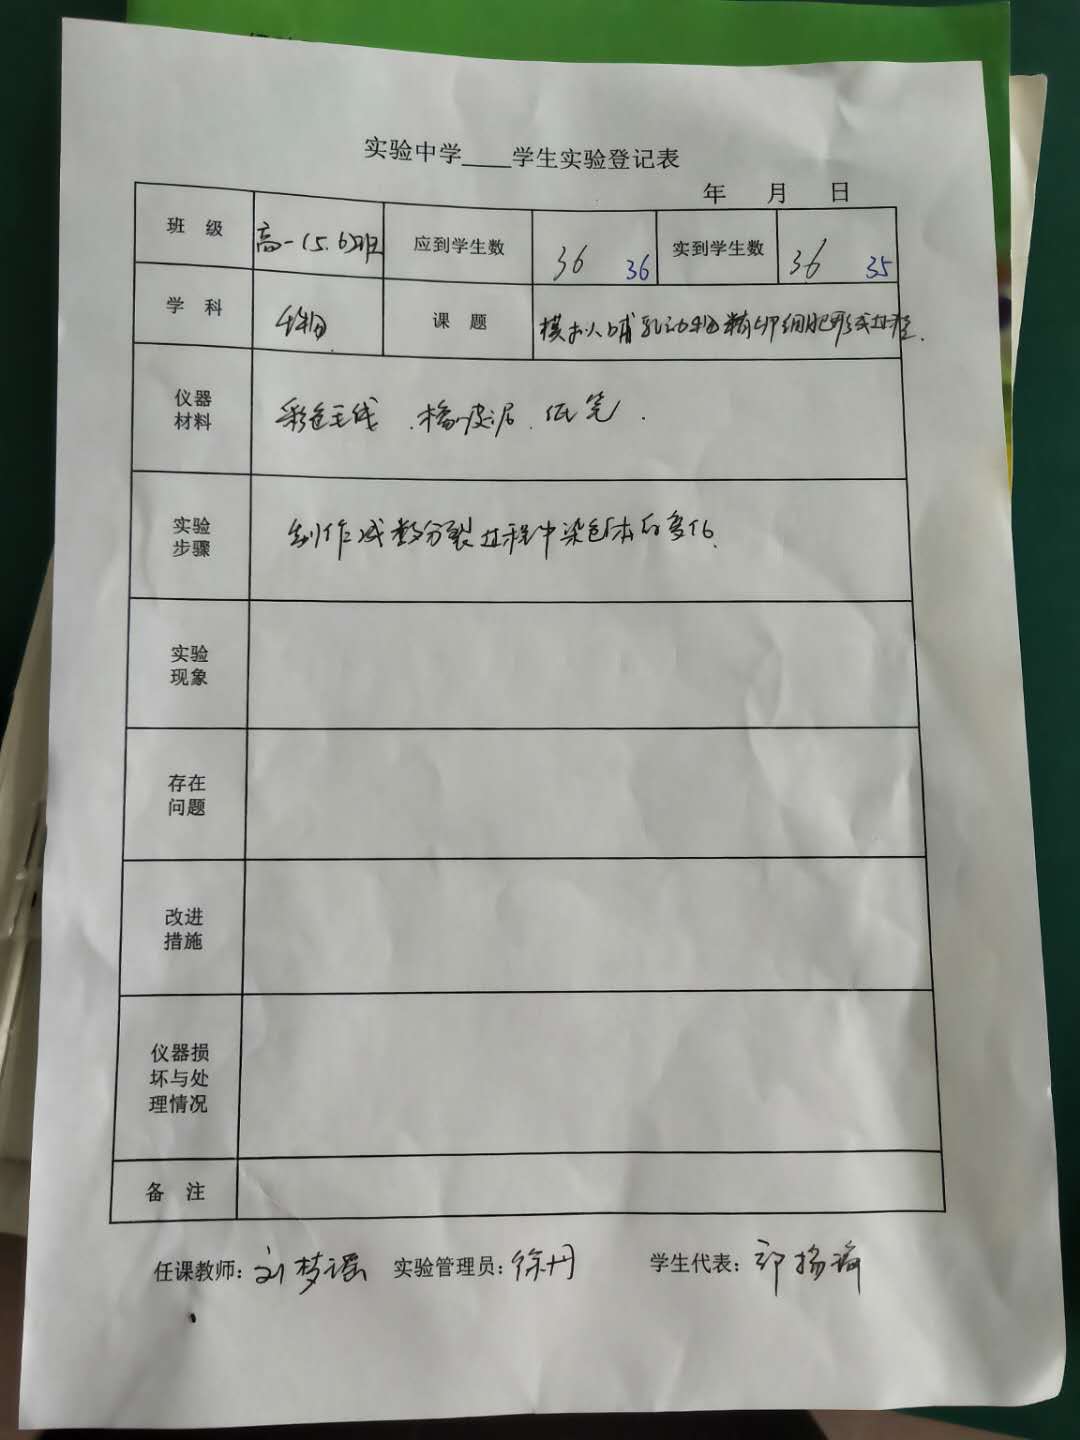 实验中学____学生实验登记表
年 月 日
班 级 高一(5.6)班 应到学生数 36 36 实到学生数 36 35
学 科 生物 课 题 模拟哺乳动物精卵细胞形成过程.
仪器
材料
彩色毛线 . 橡皮泥 . 纸笔 .
实验
步骤
制作减数分裂过程中染色体的变化.
实验
现象
存在
问题
改进
措施
仪器损
坏与处
理情况
备 注
任课教师: 刘梦瑶 实验管理员: 徐丹 学生代表: